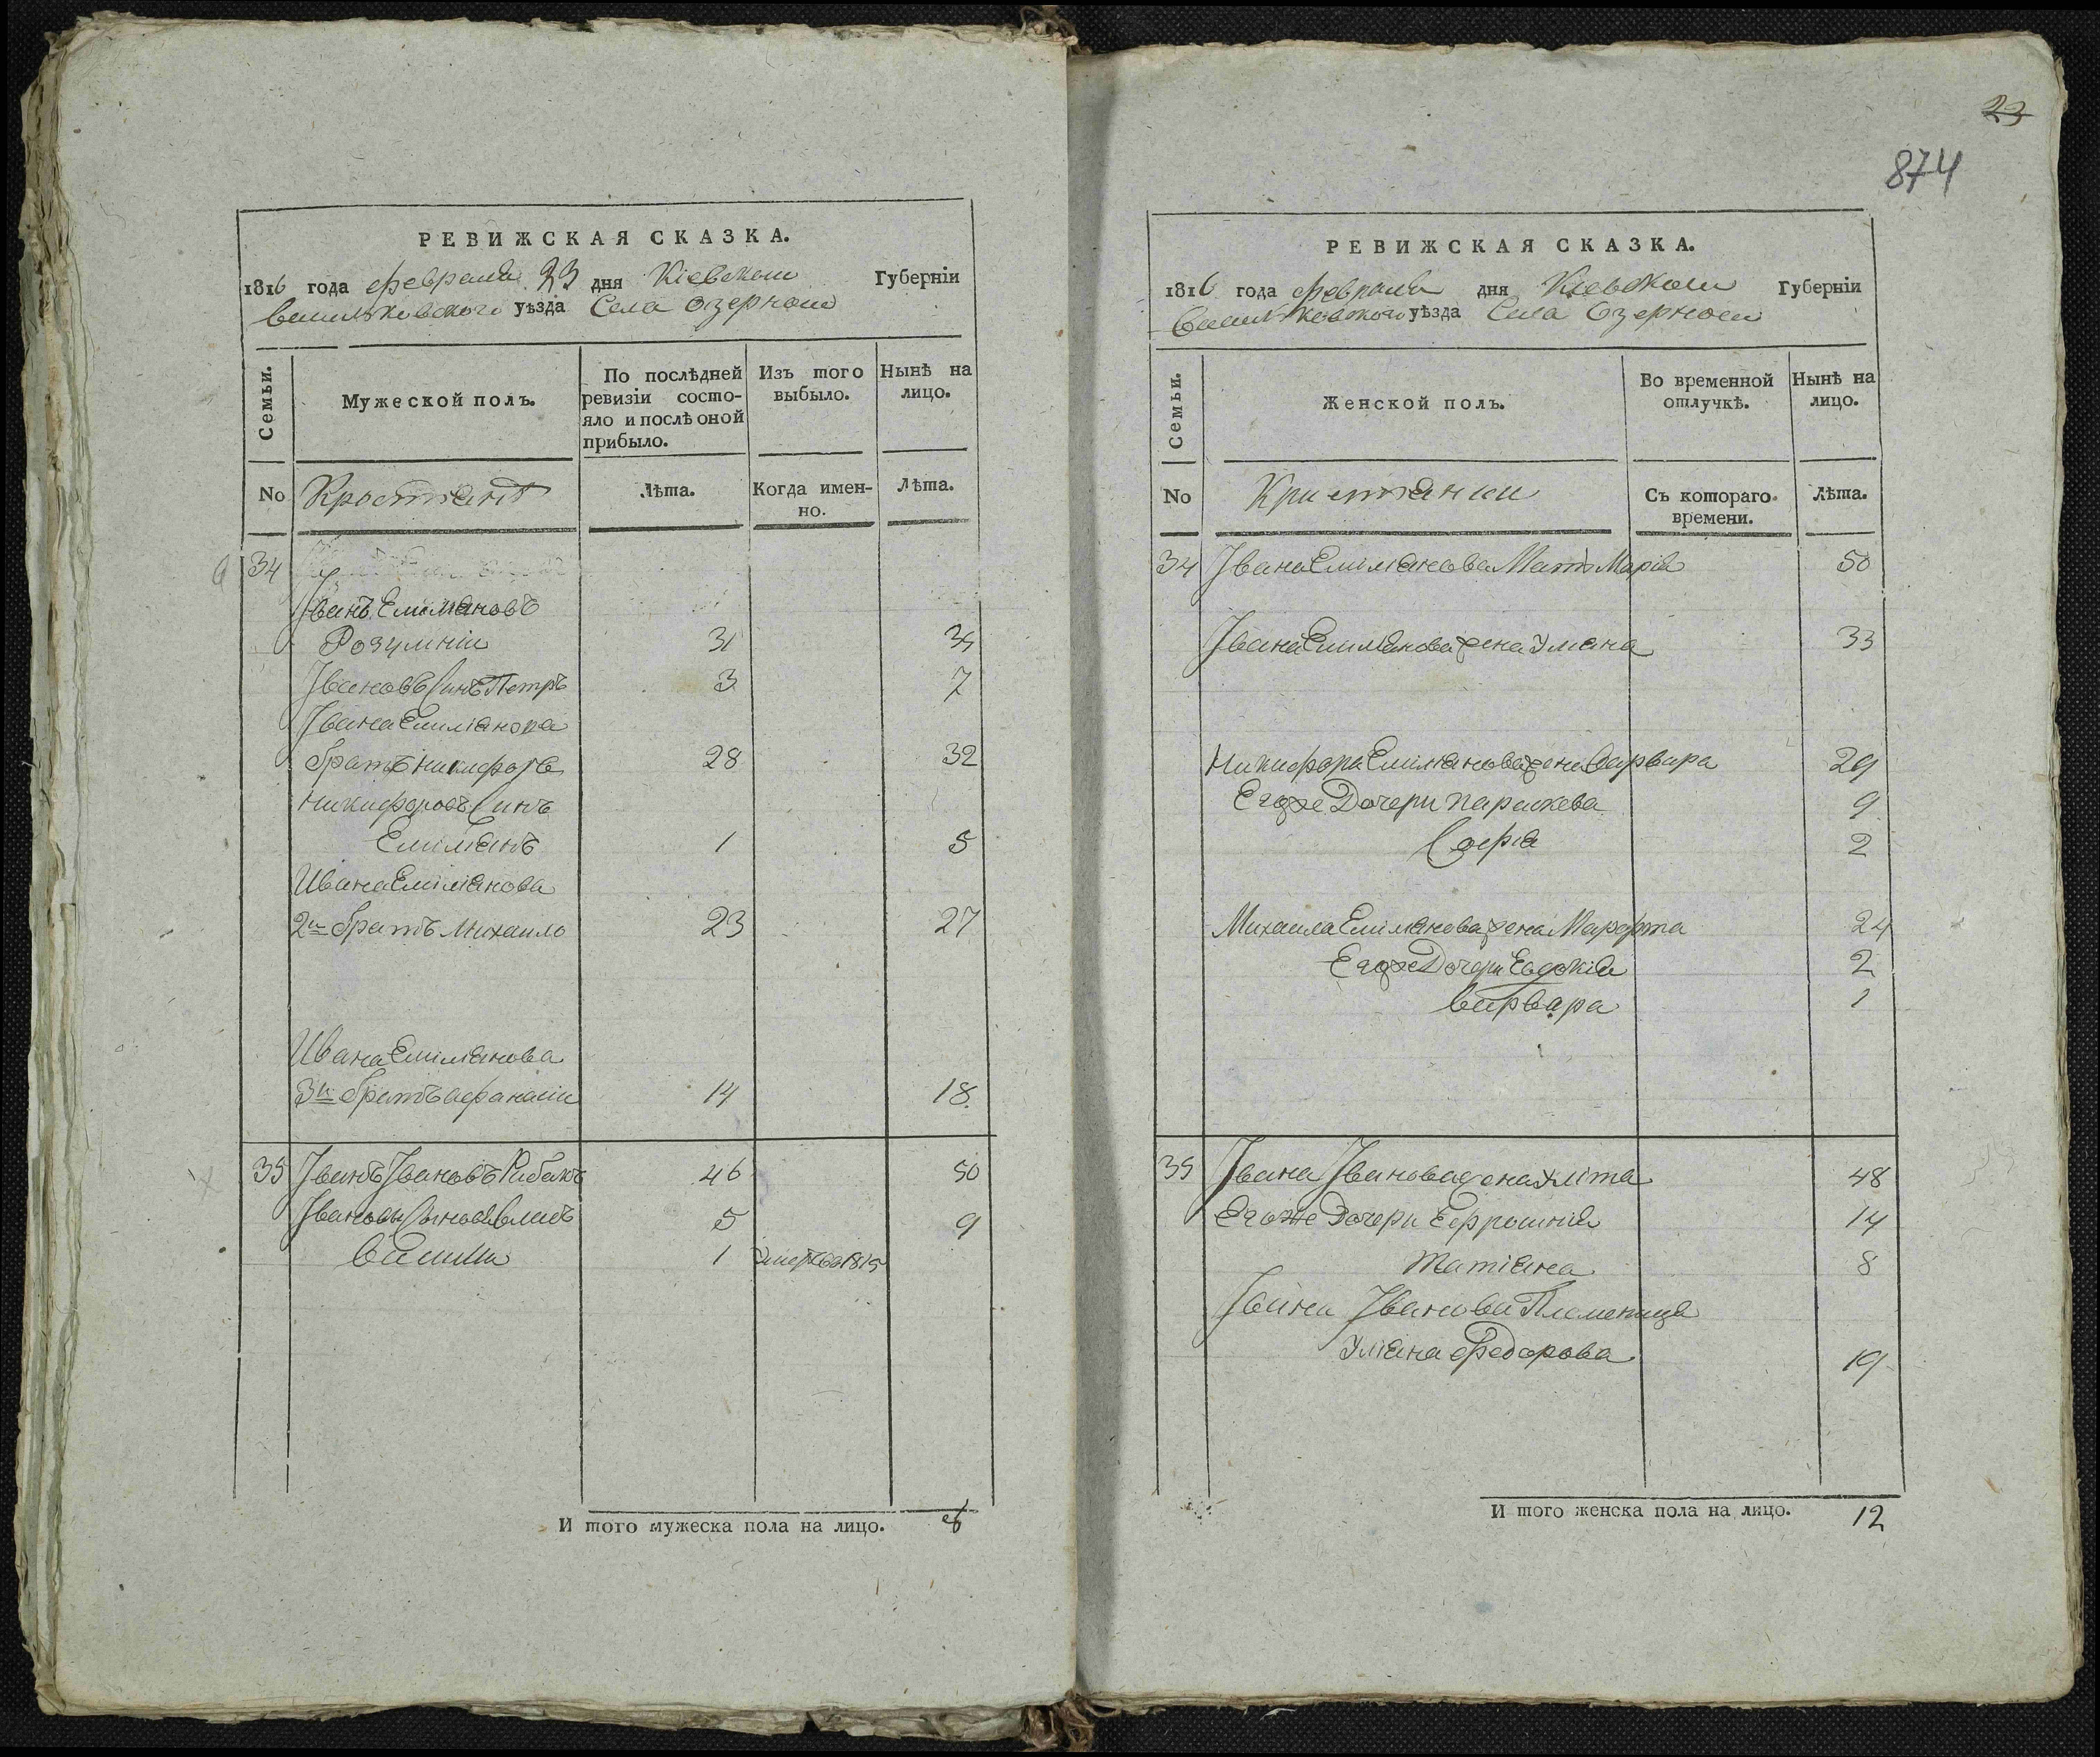 РЕВИЖСКАЯ СКАЗКА.
1816 года февраля 23 дня Кіевской Губерніи
Васильковского уѣзда Села Озерной
Семьи.
Мужеской полъ.
По послѣдней ревизіи состо-
яло и послѣ оной прибыло.
Изъ того выбыло.
Нынѣ на лицо.
No
Лѣта.
Когда имен-
но.
Лѣта.
34
Іванъ Емиліановъ
Розумній 31 35
Івановъ Синъ Петръ 3 7
Івана Емиліанова
братъ Никифоръ 28 32
Никифоровъ Синъ
Емиліанъ 1 5
Ивана Емиліанова
2й братъ Михаило 23 27
Ивана Емиліанова
3й братъ Афанасій 14 18
35 Іванъ Івановъ Рибакъ 46 50
Івановы Синовя 5 9
Василій 1 1815
И того мужеска пола на лицо. 8
23
874
РЕВИЖСКАЯ СКАЗКА.
1816 года февраля дня Кіевской Губерніи
Васильковского уѣзда Села Озерной
Семьи.
Женской полъ.
Во временной отлучкѣ.
Нынѣ на лицо.
No
Кристянки
Съ котораго времени.
Лѣта.
34 Івана Емиліанова Мать Марія 50
Івана Емиліанова жена Уліяна 33
Никифора Емиліанова жена Варвара 29
Егоже Дочери Параскева 9
Софія 2
Михаила Емиліанова жена Марфта 24
Егоже Дочери Евдокія 2
Варвара 1
35 Івана Іванова жена 48
Егоже Дочери Ефросинія 14
Татіяна 8
Івана Іванова Племеница
Уліяна Федорова 19
И того женска пола на лицо. 12